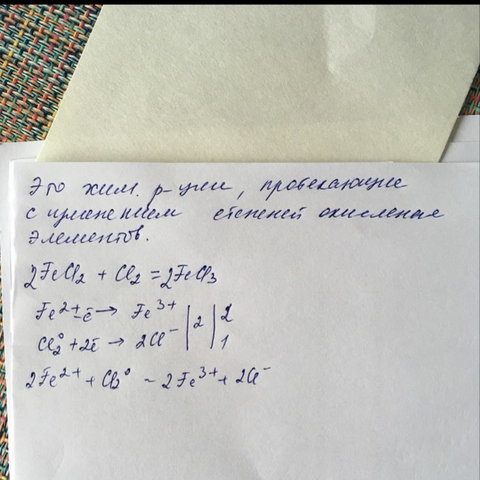 Это хим. р-ции, протекающие
с изменением степеней окисления
элементов.
2FeCl2 + Cl2 = 2FeCl3
Fe²⁺ -ē → Fe³⁺ | | 2
Cl₂⁰ + 2ē → 2Cl⁻ | 2 | 1
2Fe²⁺ + Cl₂⁰ - 2Fe³⁺ + 2Cl⁻